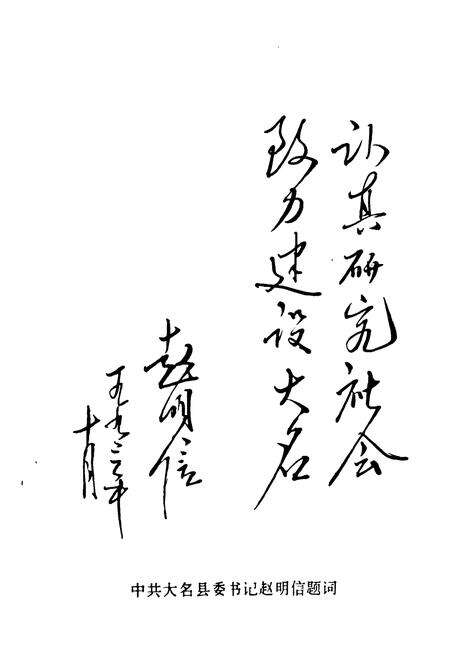 认真研究社会
致力建设大名
赵明信
一九九三年
十月
中共大名县委书记赵明信题词